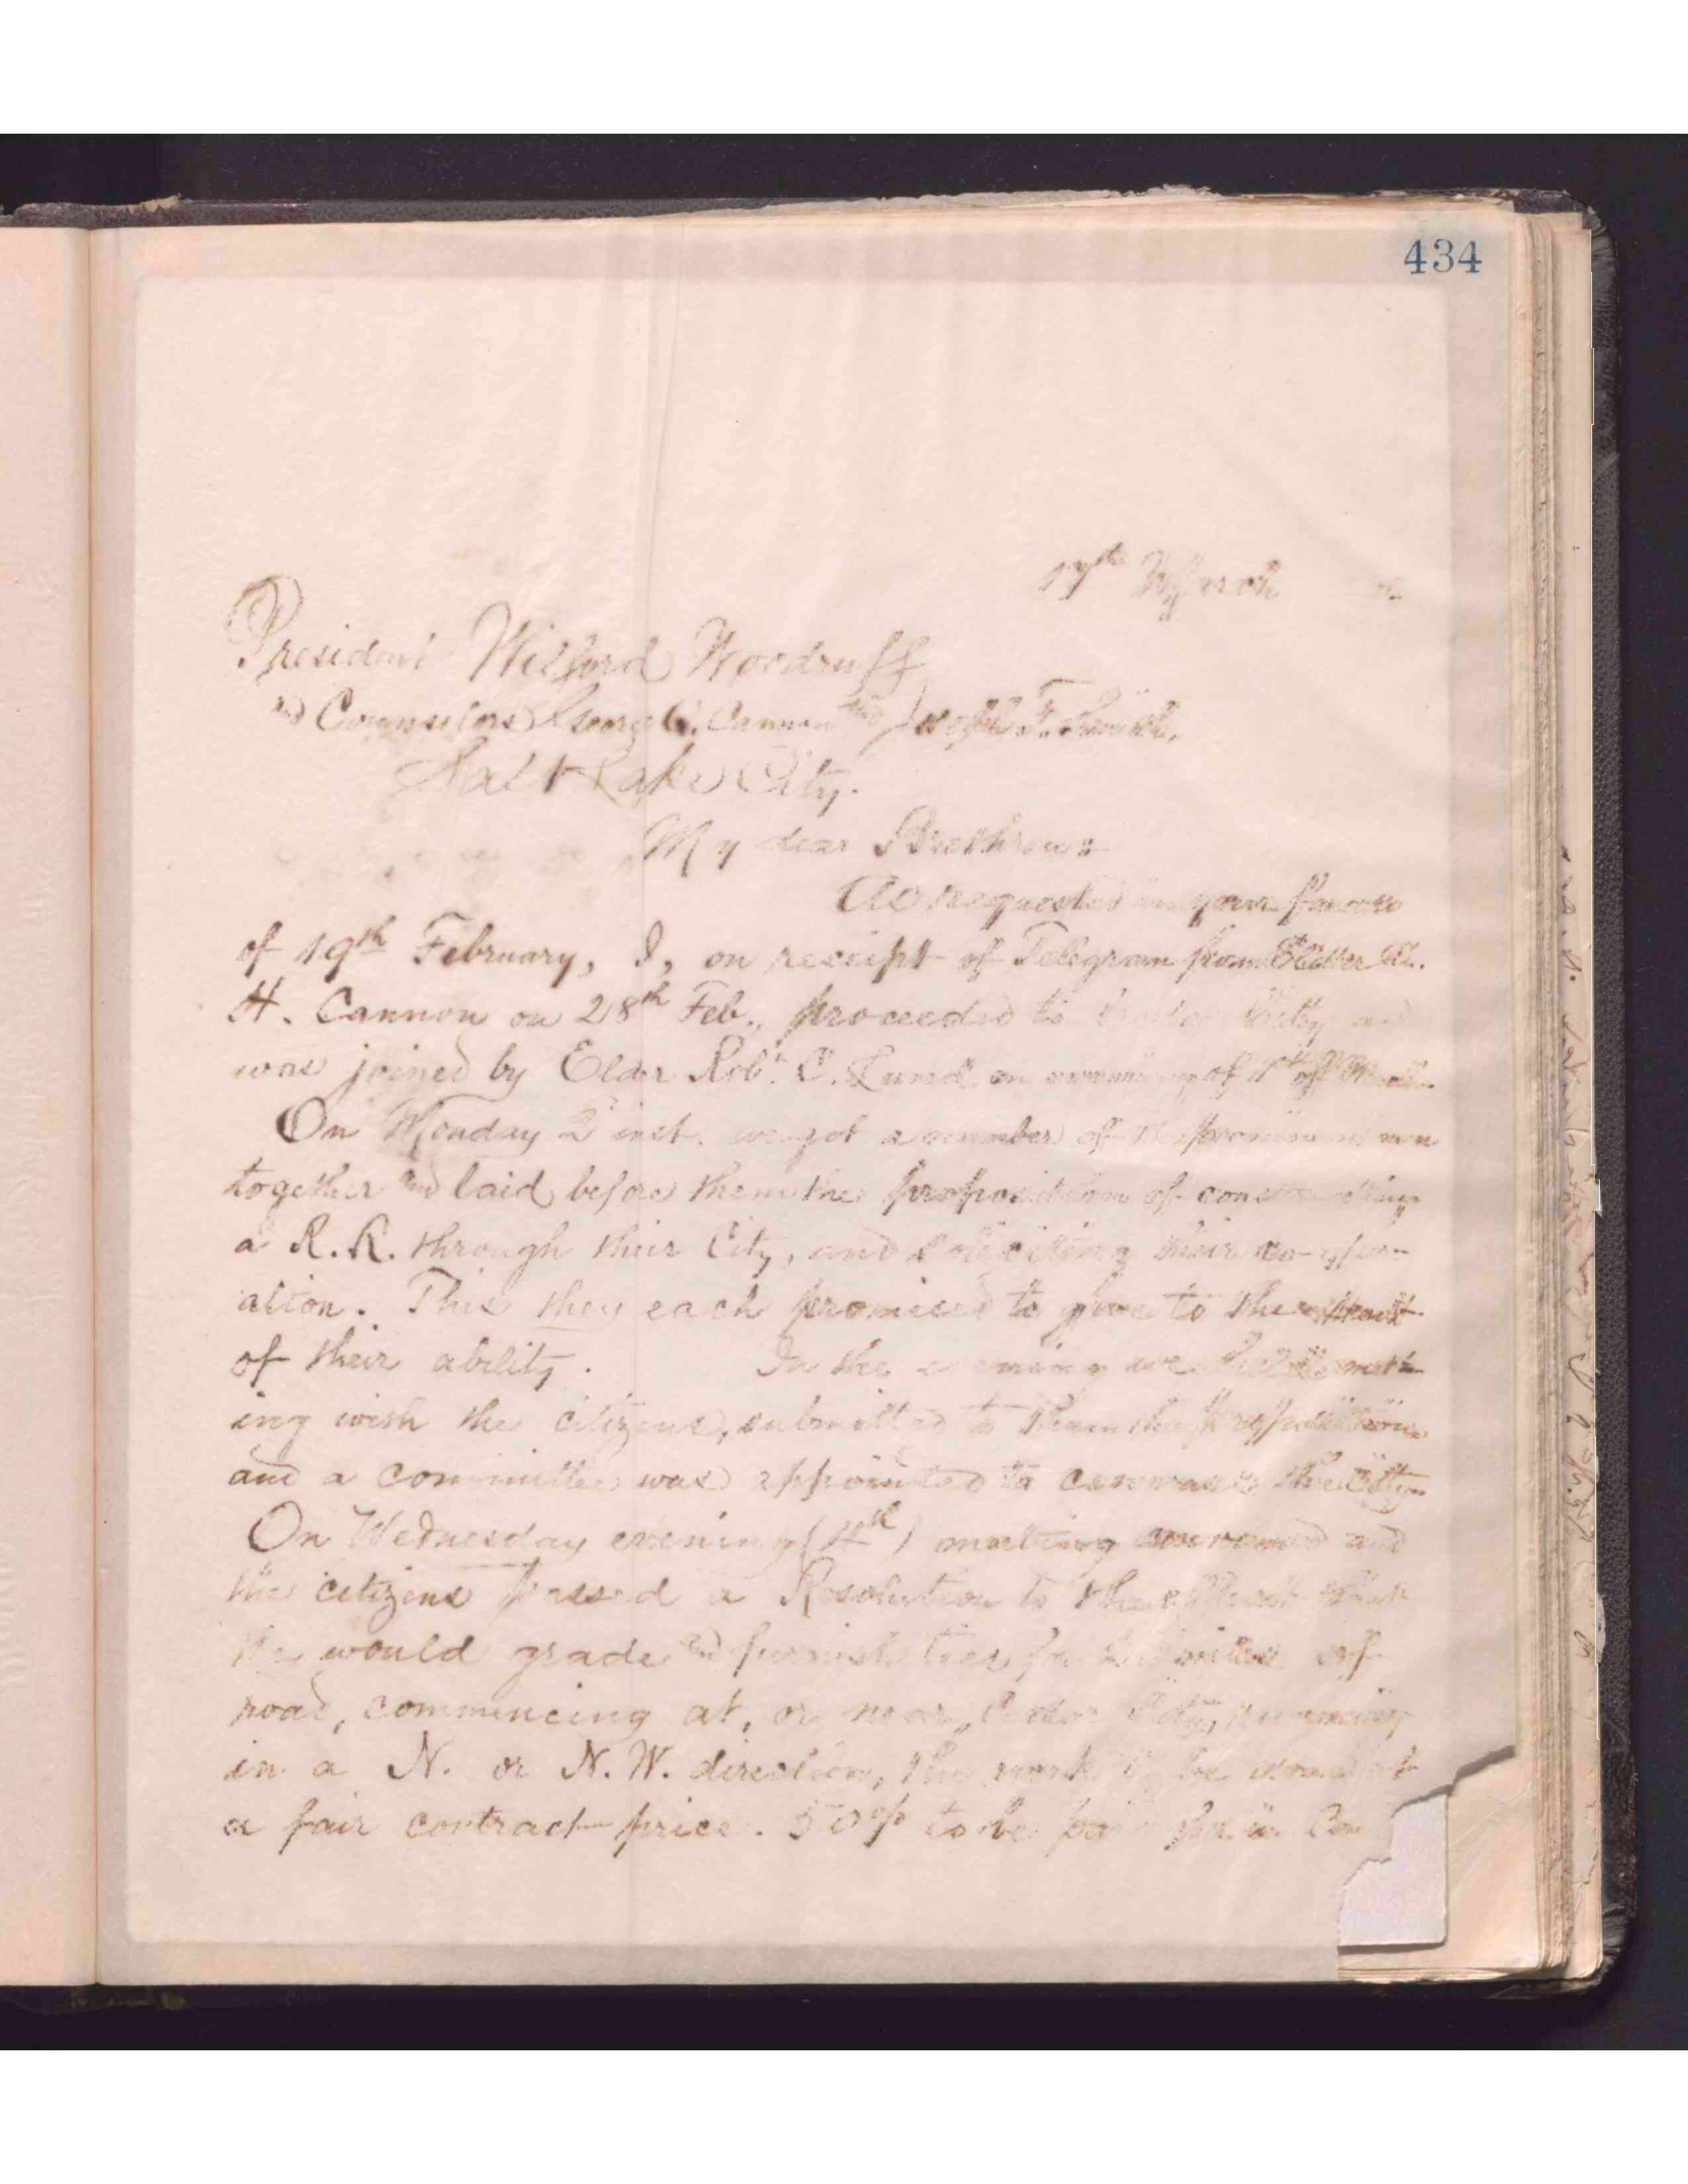 434
17th March
President Wilford Woodruff
and Counselors George Q. Cannon and Joseph F. Smith,
Salt Lake City.
My dear Brethren:
As requested in your favor
of 19th February, I, on receipt of Telegram from Elder A.
H. Cannon on 28th Feb., proceeded to Cedar City and
was joined by Elder Robt. C. Lund on evening of 1st of
On Monday 2d inst. we got a number of the prominent men
together and laid before them the proposition of constructing
a R.R. through their City, and soliciting their co-oper-
ation. This they each promised to give to the extent
of their ability. In the evening we held a meet-
ing with the citizens, submitted to them the proposition
and a committee was appointed to canvass the City.
On Wednesday evening (4th) meeting convened and
the citizens passed a Resolution to the effect that
would grade and furnish ties for miles of
road, commencing at, or near, Cedar City, running
in a N. or N.W. direction, the work to be done at
a fair contract price. 50% to be paid